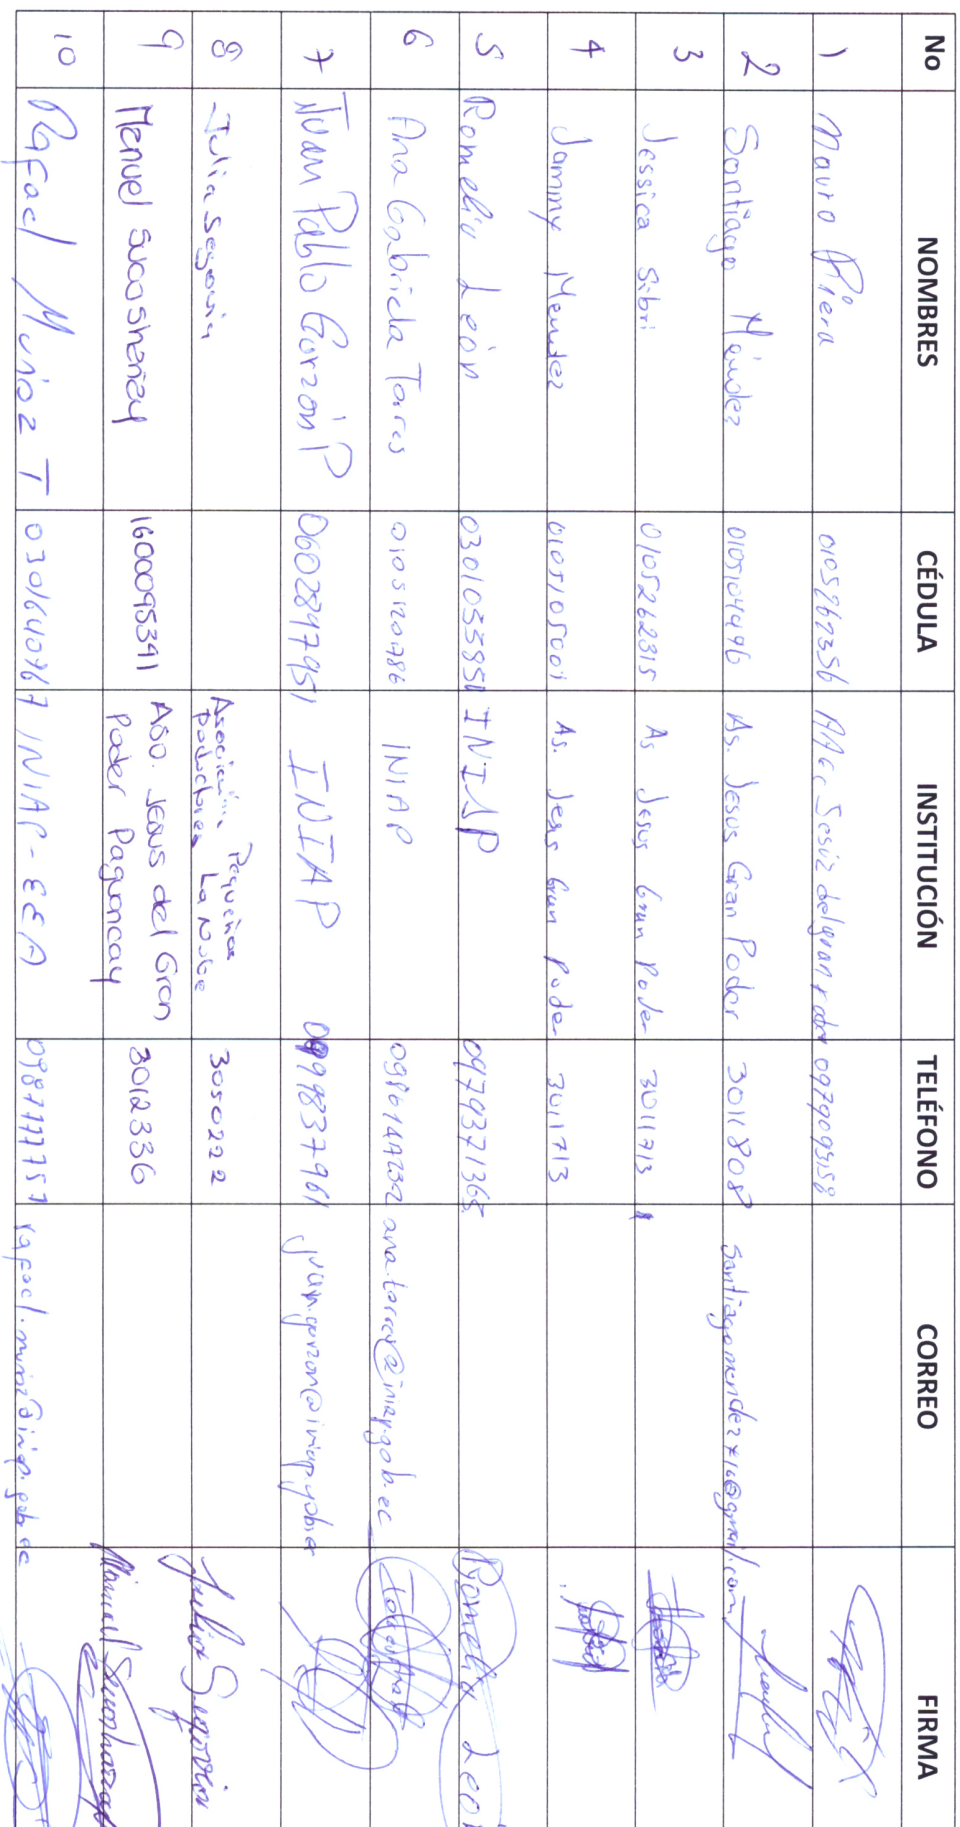 No NOMBRES CÉDULA INSTITUCIÓN TELÉFONO CORREO FIRMA
1 Mauro Piera 0105267356 0979099158
2 Santiago Méndez 0105104496 As. Jesus Gran Poder 3011808 santiagomendez716@gmail.com
3 Jessica Sibri 0105262315 As Jesus Gran Poder 3011713
4 Jammy Mendez 0105105001 As. Jesus Gran Poder 3011713
5 Romelia León 0301035951 INIAP 0979371365 Romelia León
6 Ana Gabriela Torres 0105120786 INIAP ana.torres@iniap.gob.ec
7 Juan Pablo Garzón P 0602847951 INIAP 0999837961 juan.garzon@iniap.gob.ec
8 Julia Segovia Asociación Pequeños
Productores La Nube 3050222 Julia Segovia
9 Manuel Sucoshañay 1600095341 Aso. Jesus del Gran
Poder Paguancay 3012336 Manuel Sucoshañay
10 Rafael Muñoz T 0301640967 INIAP-EEA 0987777757 rafael.munoz@iniap.gob.ec